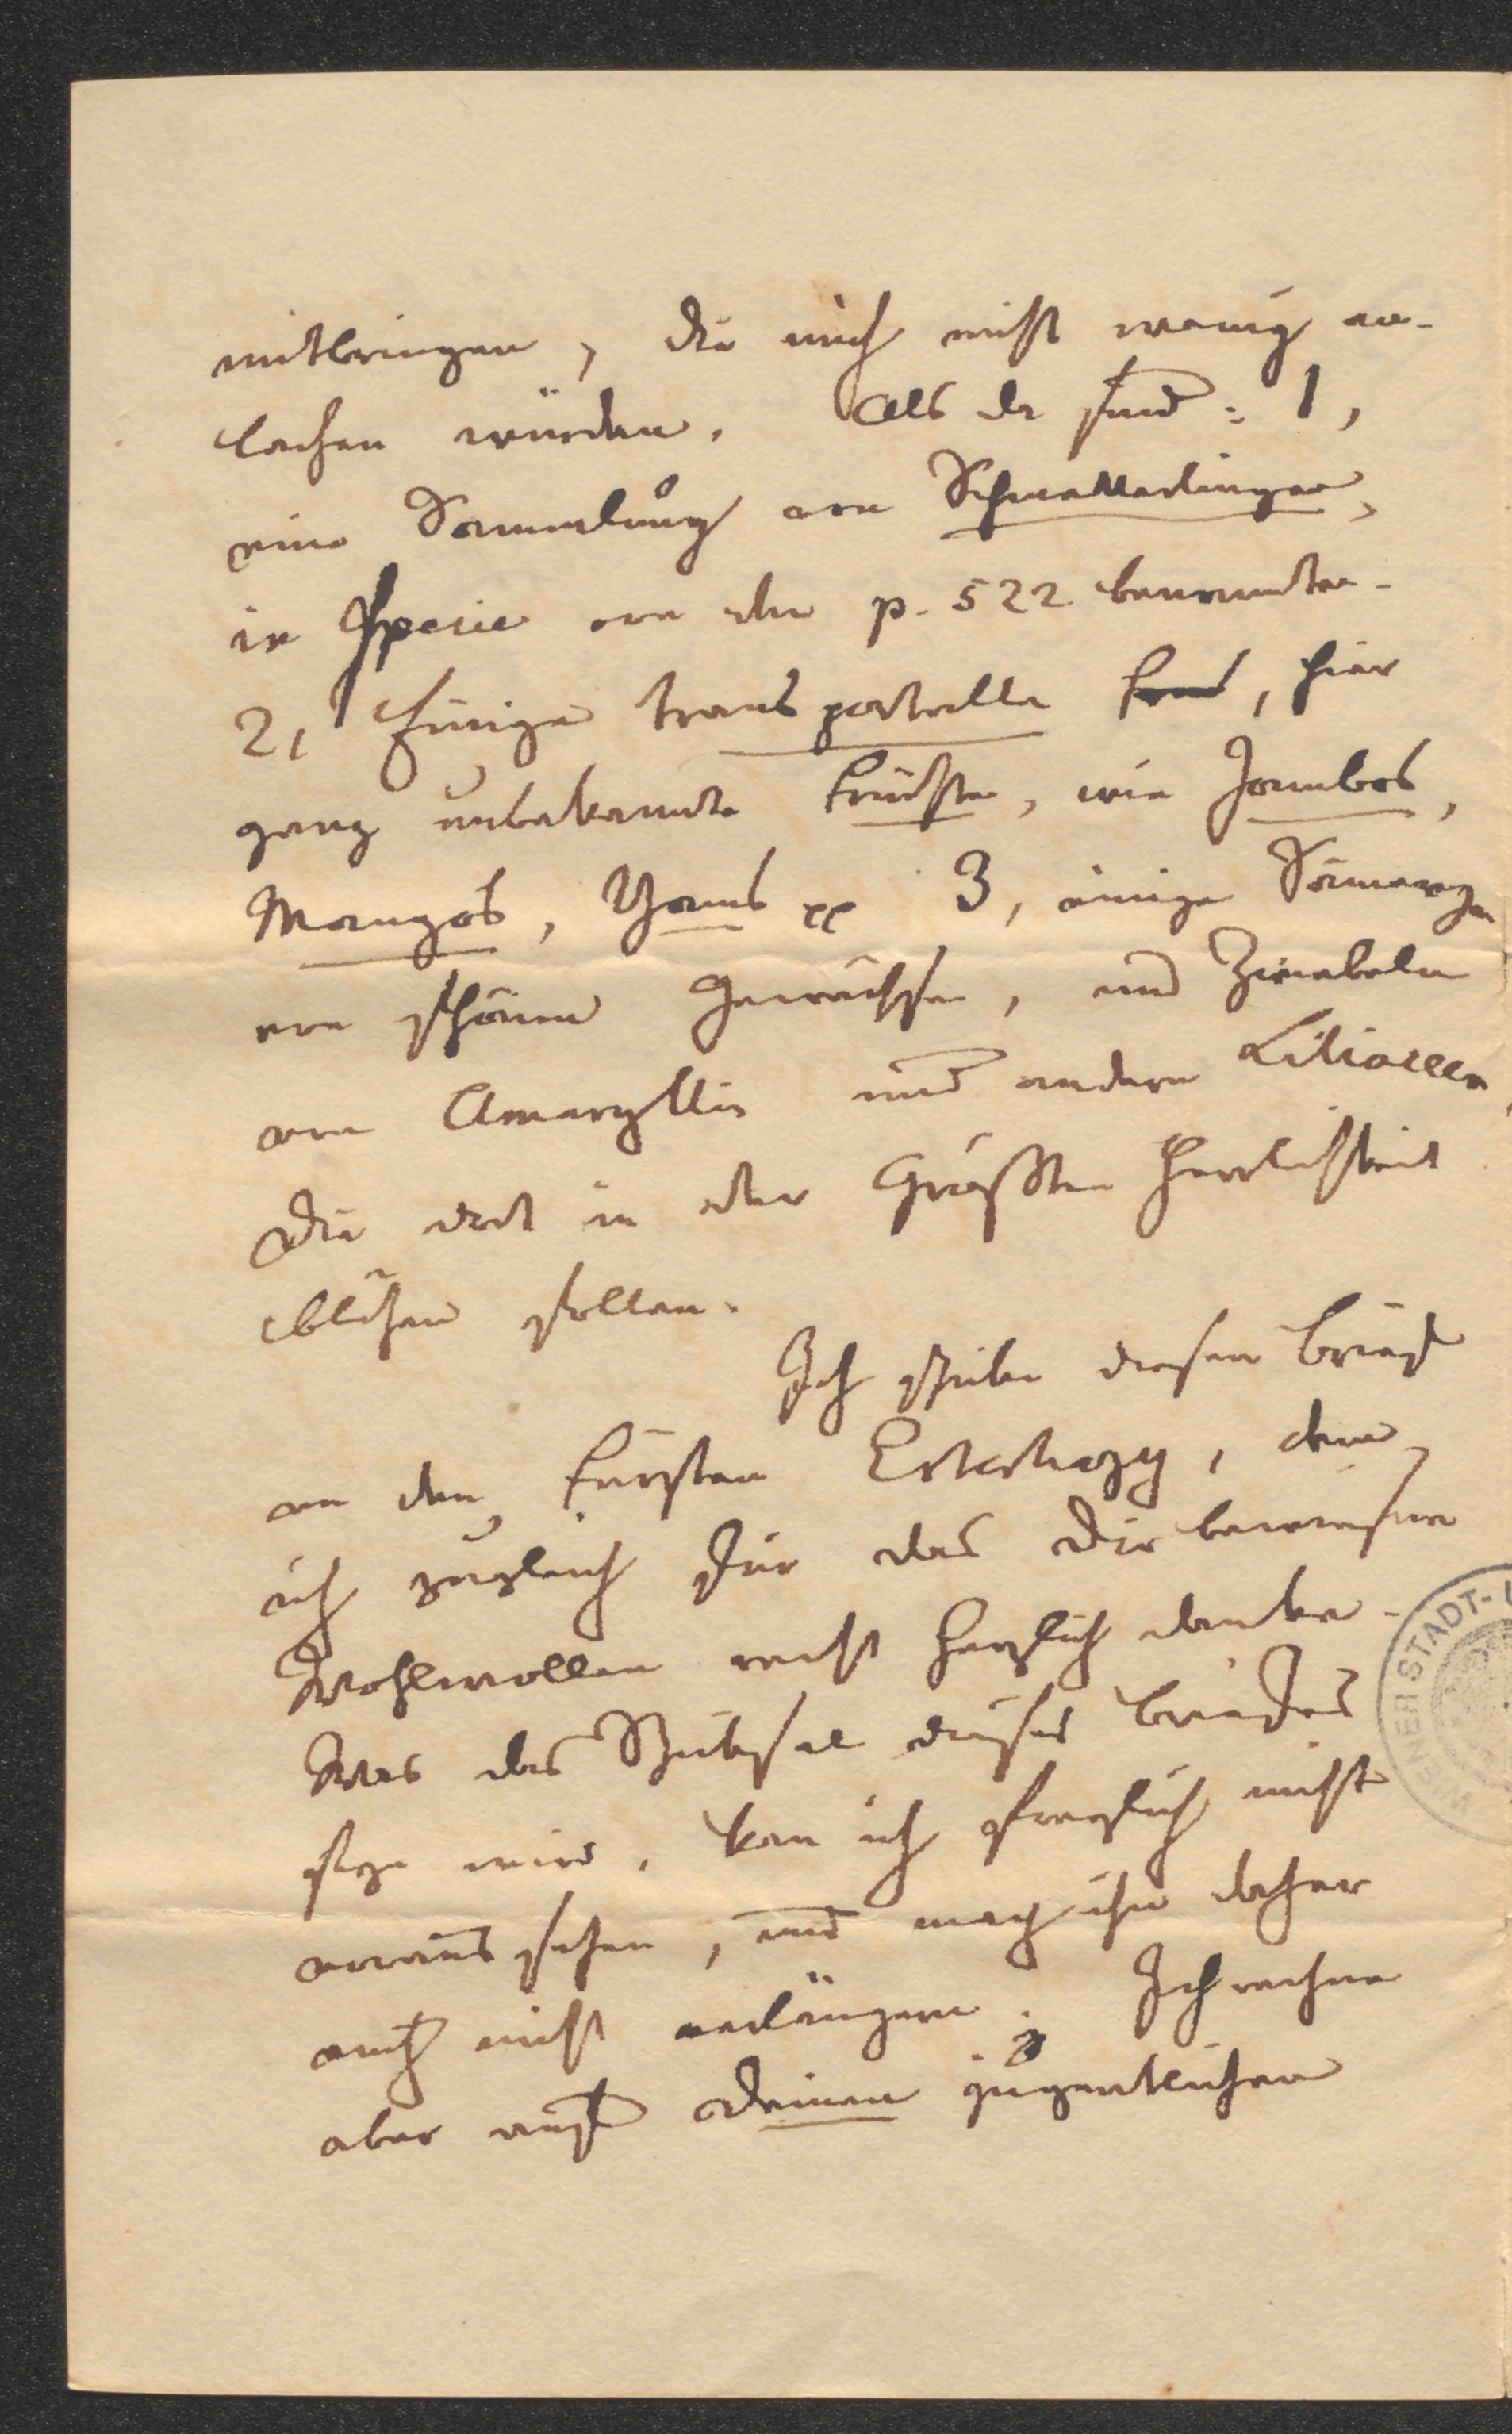 mitbringen, die mich nicht wenig an-
lachen würden. Als da sind: 1,
eine Sammlung von Schmetterlingen,
in Specie von den p. 522 benannten.
2, Einige transportable, hier
ganz unbekannte Früchte, wie Jambos,
Mangos, Yams pp 3, einige Sämereyen
von schönen Gewächsen, und Zwiebeln
von Amaryllis und andern Liliaceen,
die dort in der Größten Herrlichkeit
blühen sollen.
Ich schicke diesen Brief
an den Fürsten Esterhazy, dem
ich zugleich für das Dir bewiesene
Wohlwollen recht herzlich danke.
Was das Schicksal dieses Briefes
seyn wird, kan ich freylich nicht
voraus sehen, und mag ihn daher
auch nicht verlängern. Ich rechne
aber auf Deinen jugentlichen
WIENER STADT-